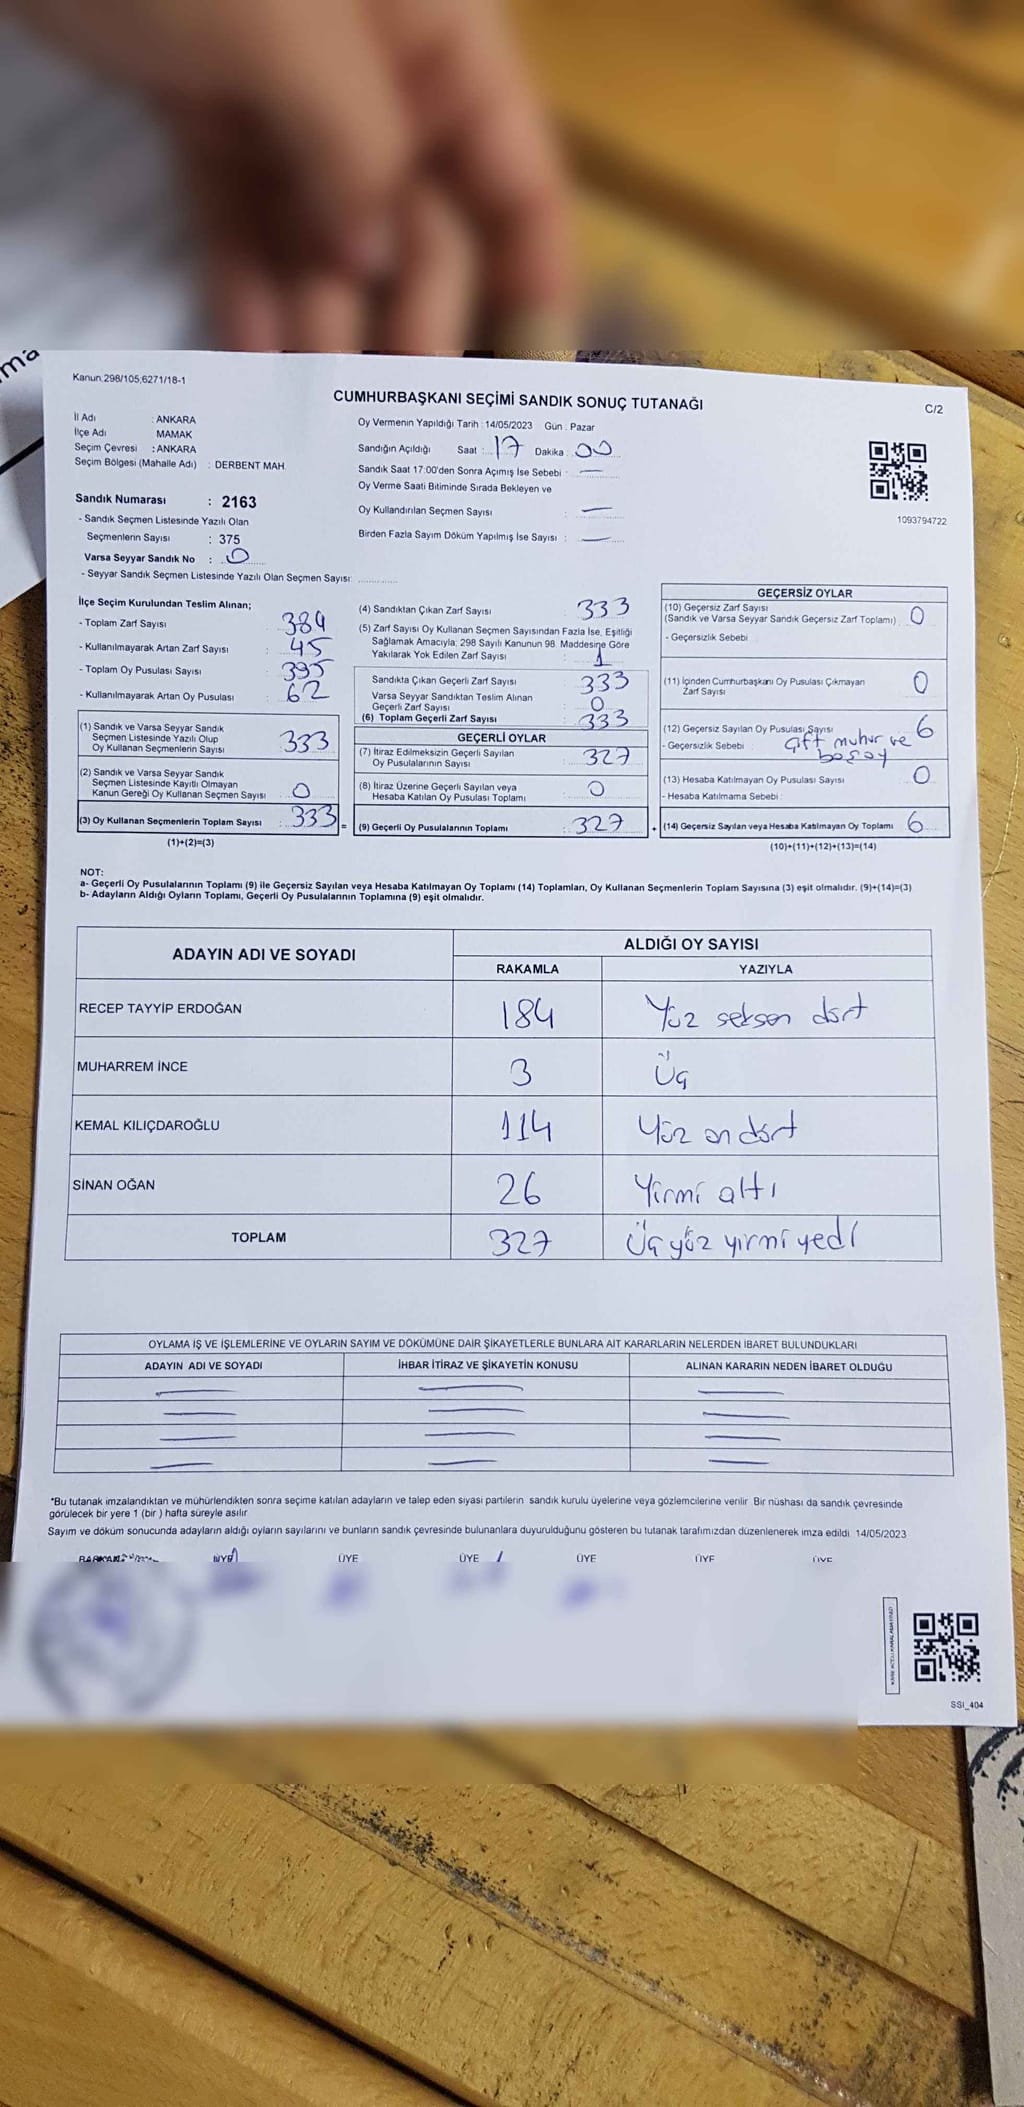 ma
Kanun 298/105,6271/18-1
CUMHURBAŞKANI SEÇİMİ SANDIK SONUÇ TUTANAĞI
C/2
İl Adı : ANKARA
İlçe Adı MAMAK
Seçim Çevresi : ANKARA
Seçim Bölgesi (Mahalle Adı) : DERBENT MAH.
Oy Vermenin Yapıldığı Tarih : 14/05/2023 Gün : Pazar
Sandığın Açıldığı Saat : 17 Dakika : 00
Sandık Saat 17:00'den Sonra Açımış İse Sebebi : —
Oy Verme Saati Bitiminde Sırada Bekleyen ve
Oy Kullandırılan Seçmen Sayısı : —
Birden Fazla Sayım Döküm Yapılmış İse Sayısı : —
1093794722
Sandık Numarası : 2163
- Sandık Seçmen Listesinde Yazılı Olan
Seçmenlerin Sayısı : 375
Varsa Seyyar Sandık No : 0
- Seyyar Sandık Seçmen Listesinde Yazılı Olan Seçmen Sayısı: ............
İlçe Seçim Kurulundan Teslim Alınan;
- Toplam Zarf Sayısı : 384
- Kullanılmayarak Artan Zarf Sayısı : 45
- Toplam Oy Pusulası Sayısı : 395
- Kullanılmayarak Artan Oy Pusulası : 62
(1) Sandık ve Varsa Seyyar Sandık
Seçmen Listesinde Yazılı Olup
Oy Kullanan Seçmenlerin Sayısı : 333
(2) Sandık ve Varsa Seyyar Sandık
Seçmen Listesinde Kayıtlı Olmayan
Kanun Gereği Oy Kullanan Seçmen Sayısı : 0
(3) Oy Kullanan Seçmenlerin Toplam Sayısı : 333 =
(1)+(2)=(3)
(4) Sandıktan Çıkan Zarf Sayısı : 333
(5) Zarf Sayısı Oy Kullanan Seçmen Sayısından Fazla İse, Eşitliği
Sağlamak Amacıyla; 298 Sayılı Kanunun 98. Maddesine Göre
Yakılarak Yok Edilen Zarf Sayısı : 1
Sandıkta Çıkan Geçerli Zarf Sayısı : 333
Varsa Seyyar Sandıktan Teslim Alınan
Geçerli Zarf Sayısı : 0
(6) Toplam Geçerli Zarf Sayısı : 333
GEÇERLİ OYLAR
(7) İtiraz Edilmeksizin Geçerli Sayılan
Oy Pusulalarının Sayısı : 327
(8) İtiraz Üzerine Geçerli Sayılan veya
Hesaba Katılan Oy Pusulası Toplamı : 0
(9) Geçerli Oy Pusulalarının Toplamı : 327 +
GEÇERSİZ OYLAR
(10) Geçersiz Zarf Sayısı
(Sandık ve Varsa Seyyar Sandık Geçersiz Zarf Toplamı) : 0
- Geçersizlik Sebebi
(11) İçinden Cumhurbaşkanı Oy Pusulası Çıkmayan
Zarf Sayısı 0
(12) Geçersiz Sayılan Oy Pusulası Sayısı 6
- Geçersizlik Sebebi : çift muhur ve
boş oy
(13) Hesaba Katılmayan Oy Pusulası Sayısı 0
- Hesaba Katılmama Sebebi :
(14) Geçersiz Sayılan veya Hesaba Katılmayan Oy Toplamı 6
(10)+(11)+(12)+(13)=(14)
NOT:
a- Geçerli Oy Pusulalarının Toplamı (9) ile Geçersiz Sayılan veya Hesaba Katılmayan Oy Toplamı (14) Toplamları, Oy Kullanan Seçmenlerin Toplam Sayısına (3) eşit olmalıdır. (9)+(14)=(3)
b- Adayların Aldığı Oyların Toplamı, Geçerli Oy Pusulalarının Toplamına (9) eşit olmalıdır.
ADAYIN ADI VE SOYADI
ALDIĞI OY SAYISI
RAKAMLA YAZIYLA
RECEP TAYYİP ERDOĞAN 184 Yüz seksen dört
MUHARREM İNCE 3 Üç
KEMAL KILIÇDAROĞLU 114 Yüz on dört
SİNAN OĞAN 26 Yirmi altı
TOPLAM 327 Üç yüz yirmi yedi
OYLAMA İŞ VE İŞLEMLERİNE VE OYLARIN SAYIM VE DÖKÜMÜNE DAİR ŞİKAYETLERLE BUNLARA AİT KARARLARIN NELERDEN İBARET BULUNDUKLARI
ADAYIN ADI VE SOYADI İHBAR İTİRAZ VE ŞİKAYETİN KONUSU ALINAN KARARIN NEDEN İBARET OLDUĞU
*Bu tutanak imzalandıktan ve mühürlendikten sonra seçime katılan adayların ve talep eden siyasi partilerin sandık kurulu üyelerine veya gözlemcilerine verilir. Bir nüshası da sandık çevresinde
görülecek bir yere 1 (bir ) hafta süreyle asılır.
Sayım ve döküm sonucunda adayların aldığı oyların sayılarını ve bunların sandık çevresinde bulunanlara duyurulduğunu gösteren bu tutanak tarafımızdan düzenlenerek imza edildi. 14/05/2023
BAŞKAN ÜYE ÜYE ÜYE ÜYE ÜYE ÜYE
SSI_404